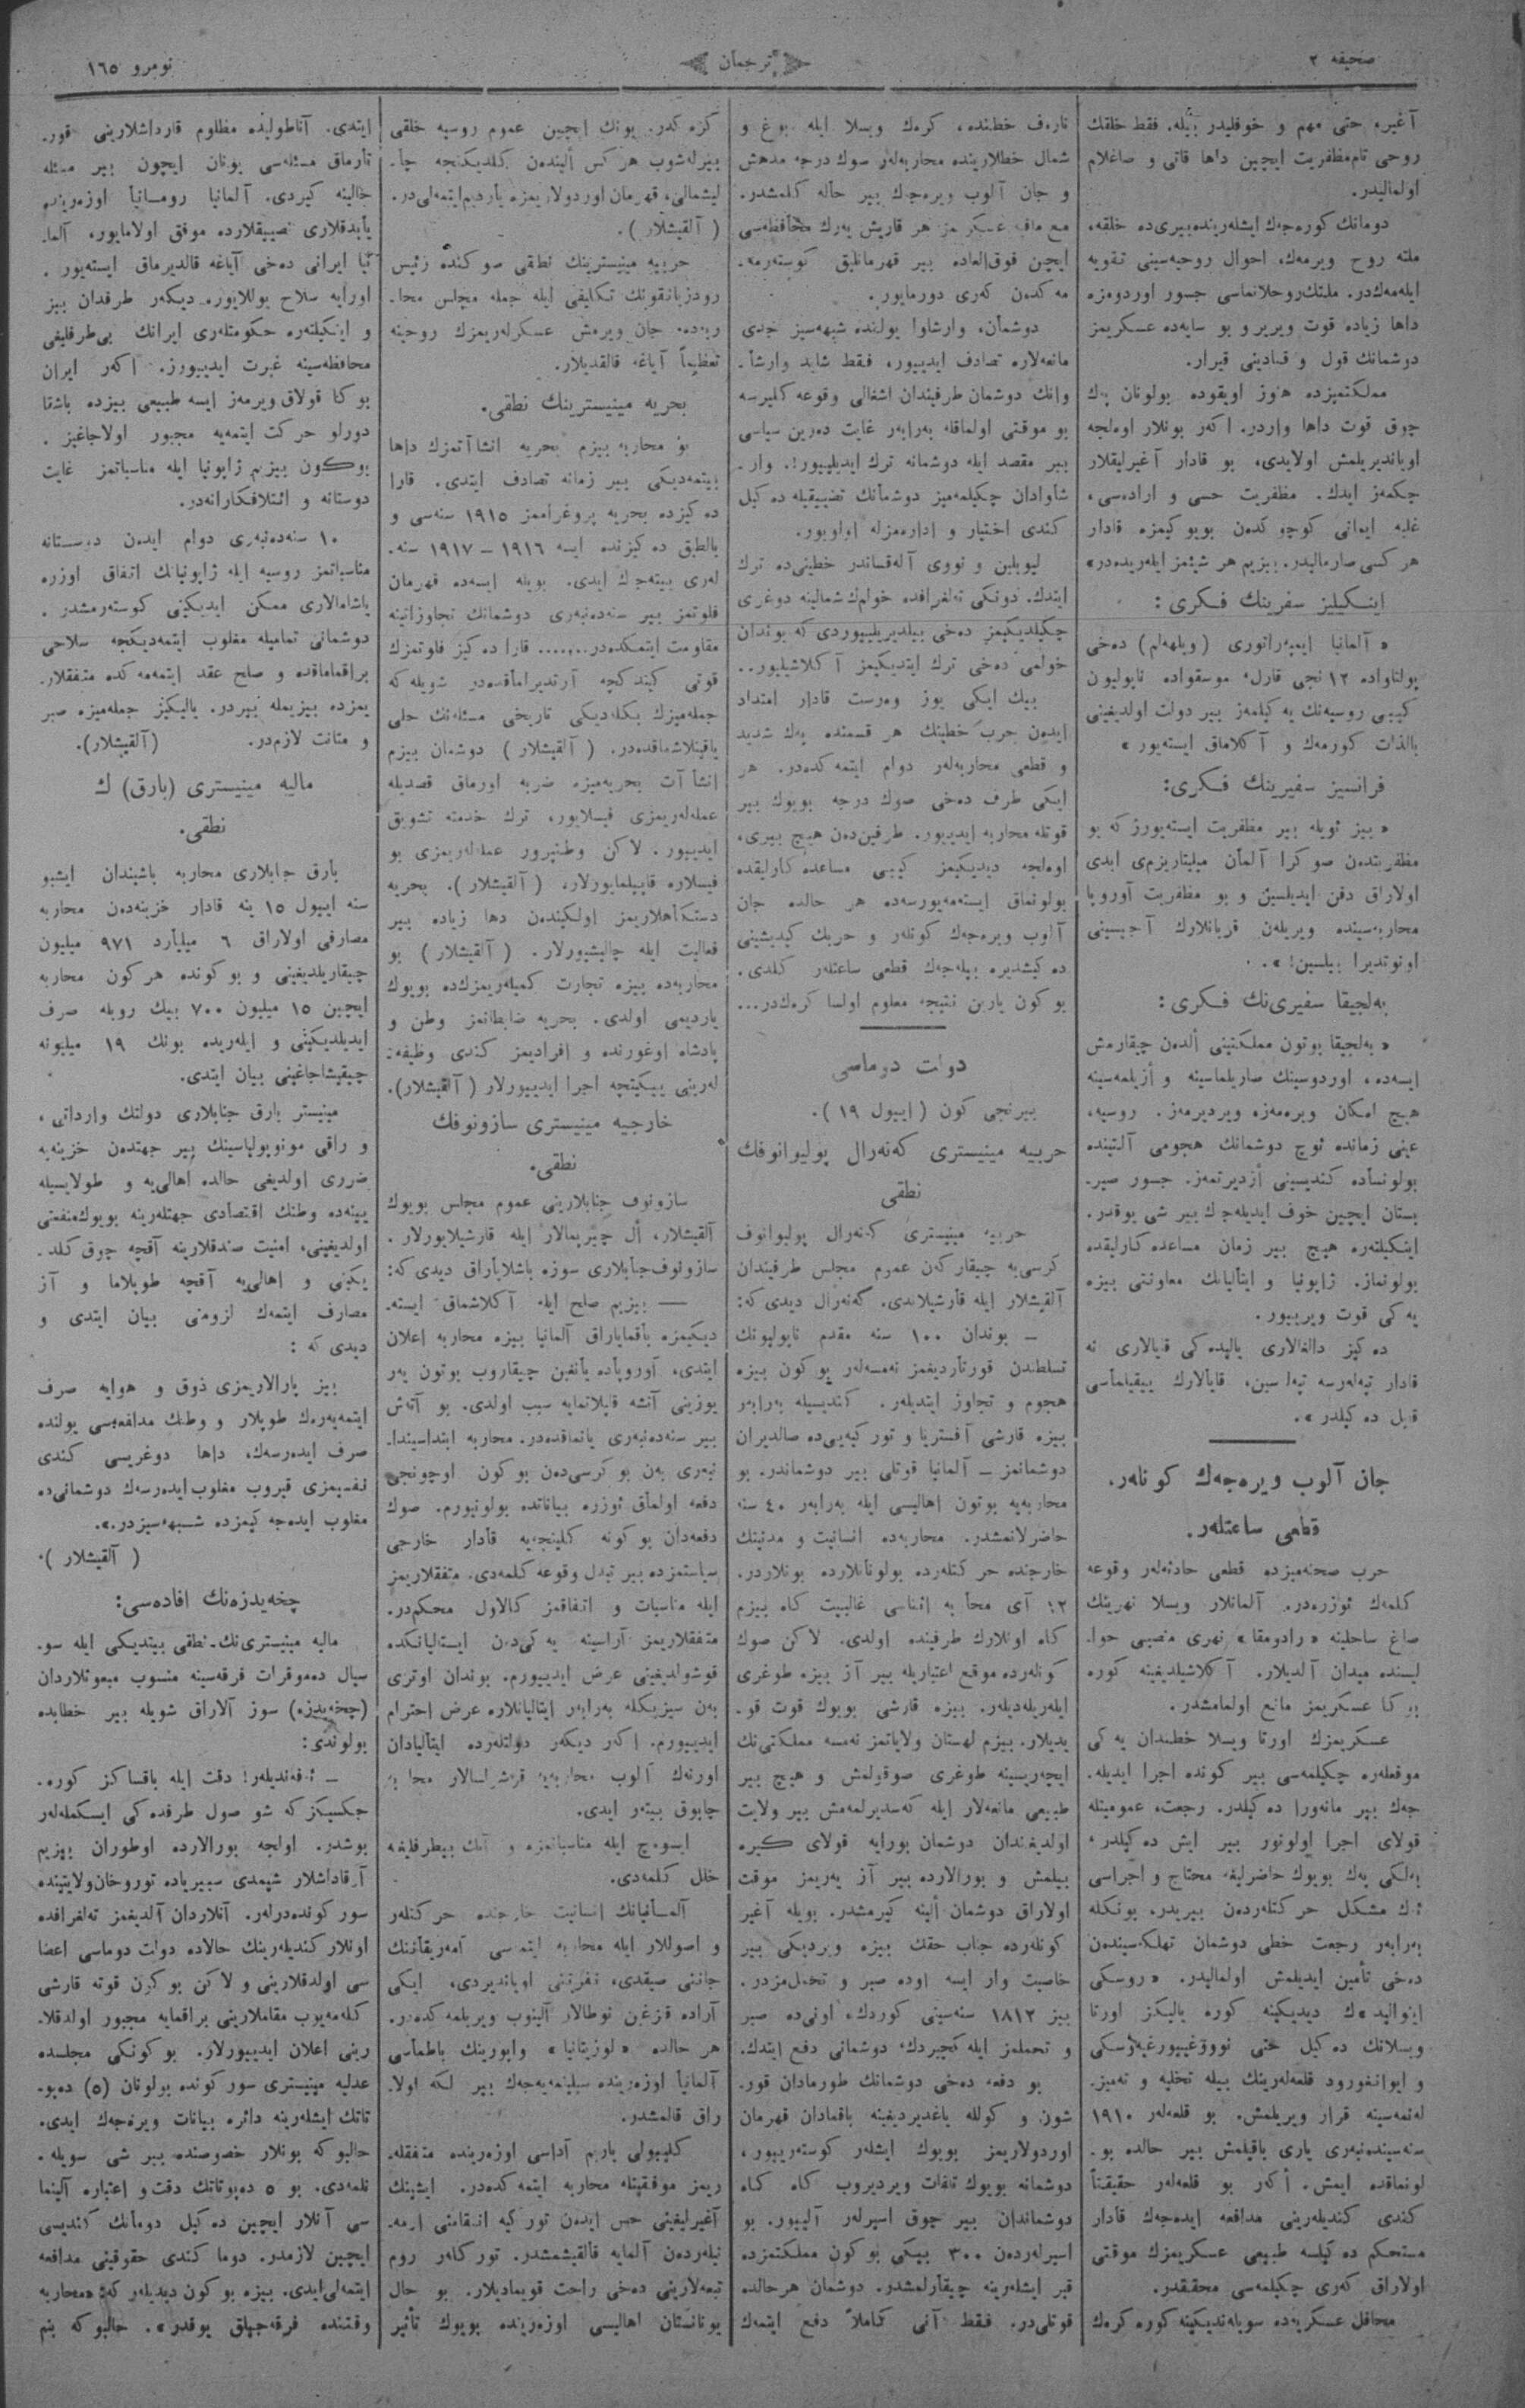 صحیفه ٢
ترجمان
نومرو ١٦٥
آغیر، حتی مهم و خوفلیدر بیله. فقط خلقك
روحی تام‌مظفریت ایچین داها قاتی و صاغلام
اولمالیدر.
دومانك کوره‌جك ایشلەرینده‌بیری‌ده خلقه،
ملته روح ویرمەك، احوال روحیەسینی تقویه
ایلەمەك‌در. ملتك‌روحلانماسی جسور اوردومزه
داها زیاده قوت ویریر و بو سایه‌ده عسکریمز
دوشمانك قول و قنادینی قیرار.
مملکتمیزده هنوز اویقوده بولونان پك
چوق قوت داها واردر. اکەر بونلار اولجه
اویاندیریلمش اولایدی، بو قادار آغیرلیقلار
چکمەز ایدك. مظفریت حسی و اراده‌سی،
غلبه ایمانی کوچوکدن بویوکیمزه قادار
هر کسی صارمالیدر. بیزیم هر شیئمز ایلەریده‌در»
اینکیلیز سفرینك فکری :
« آلمانیا ایمپەراتوری (ویلهەلم) دەخی
پولتاواده ١٢نجی قارل، موسقواده ناپولیون
کیبی روسیەنك یەکیلمەز بیر دولت اولدیغینی
بالذات کورمەك و آکلاماق ایستەیور»
فرانسیز سفیرینك فکری:
« بیز ئویله بیر مظفریت ایستەیورزکه بو
مظفریتدن صوکرا آلمان میلیتاریزمی ابدی
اولاراق دفن ایدیلسین و بو مظفریت آوروپا
محاربەسینده ویریلەن قربانلارك آجیسینی
اونوتدیرا بیلسین! ».
بەلجیقا سفیری‌نك فکری :
« بەلجیقا بوتون مملکتینی ألدەن چیقارمش
ایسەده، اوردوسینك صاریلماسینه و أزیلمەسینه
هیچ امکان ویرەمەزه ویردیرمەز. روسیه،
عینی زمانده ئوچ دوشمانك هجومی آلتینده
بولونسأده کندیسینی أزدیرتمەز. جسور صیر-
بستان ایچین خوف ایدیلەجك بیر شی یوقدر.
اینکیلتەره هیچ بیر زمان مساعده‌کارلیقده
بولونماز. ژاپونیا و ایتالیانك معاونتی بیزه
یەکی قوت ویرییور.
دەکیز دالغالاری یالیده‌کی قیالاری نه
قادار تپەلەرسه تپەلسین، قایالارك ییقیلماسی
قابل دەکیلدر ».
جان آلوب ویرەجەك کونلەر،
قطعی ساعتلەر.
حرب صحنەمیزده قطعی حادثەلەر وقوعه
کلمەك ئوزرەدر. آلمانلار ویسلا نهرینك
صاغ ساحلینه « رادومقا» نهری منصبی حوا-
لیسنده میدان آلدیلار. آکلاشیلدیغینه کوره
بو‌کا عسکریمز مانع اولمامشدر.
عسکریمزك اورتا ویسلا خطندان یەکی
موقعلەره چکیلمەسی بیر کونده اجرا ایدیله-
جك بیر مانەورا دەکیلدر. رجعت، عمومیتله
قولای اجرا اولونور بیر ایش دەکیلدر،
بەلکی پەك بویوك حاضرلیغه محتاج و اجراسی
أك مشکل حرکتلەردەن بیریدر. بونکله
بەرابەر رجعت خطی دوشمان تهلکەسیندەن
دەخی تأمین ایدیلمش اولمالیدر. « روسکی
اینوالید»ك دیدیکینه کوره یالیکز اورتا
ویسلانك دەکیل حتی نووغیورغیەوسکی
و ایوانغورود قلعەلەرینك بیله تخلیه و تەمیز-
لەنمەسینه قرار ویریلمش. بو قلعەلەر ١٩١٠
سنەسیندەنبەری یاری یاقیلمش بیر حالده بو-
لونماقده ایمش. أکەر بو قلعەلەر حقیقتاً
کندی کندیلەرینی مدافعه ایدەجەك قادار
مستحکم دەکیلسه طبیعی عسکریمزك موقتی
اولاراق کەری چکیلمەسی محققدر.
محافل عسکریەده سویلەندیکینه کوره کرەك
نارەف خطنده، کرەك ویسلا ایله بوغ و
شمال خطلارینده محاربەلەر صوك درجه مدهش
و جان آلوب ویرەجك بیر حاله کلمشدر.
مع مافیه عسکریمز هر قاریش یەرك محافظەسی
ایچن فوق‌العاده بیر قهرمانلیق کوستەرمه-
مه‌کدەن کەری دورمایور.
دوشمان، وارشاوا یولنده شبهەسیز جدی
مانعەلاره تصادف ایدییور، فقط شاید وارشا-
وانك دوشمان طرفیندان اشغالی وقوعه کلیرسه
بو موقتی اولماقله بەرابەر غایت دەرین سیاسی
بیر مقصد ایله دوشمانه ترك ایدیلییور!. وار-
شاوادان چکیلمەمیز دوشمأنك تضییقیله دەکیل
کندی اختیار و ادارەمزله اولویور.
لیوبلین و نووی آلەقساندر خطینی‌ده ترك
ایتدك. دونکی تەلغرافده خولم‌ك‌شمالینه دوغری
چکیلدیکیمز دەخی بیلدیریلییوردی که بوندان
خولمی دەخی ترك ایتدیکیمز آکلاشیلیور..
بیك ایکی یوز وەرست قادار امتداد
ایدەن حرب خطینك هر قسمنده پەك شدید
و قطعی محاربەلەر دوام ایتمەکده‌در. هر
ایکی طرف دەخی صوك درجه بویوك بیر
قوتله محاربه ایدییور. طرفین‌دەن هیچ بیری،
اولجه دیدیکیمز کیبی مساعده‌کارلیقده
بولونماق ایستەمەیورسەده هر حالده جان
آلوب ویرەجەك کونلەر و حربك کیدیشینی
دەکیشدیره بیلەجەك قطعی ساعتلەر کلدی.
بو کون یارین نتیجه معلوم اولسا کرەك‌در...
دولت دوماسی
بیرنجی کون ( ایپول ١٩ ).
حربیه مینیستری کەنەرال پولیوانوفك
نطقی
حربیه مینیستری کەنەرال پولیوانوف
کرسی‌یه چیقارکەن عموم مجلس طرفیندان
آلقیشلار ایله قارشیلاندی. کەنەرال دیدی که:
— بوندان ١٠٠ سنه مقدم ناپولیونك
تسلطندن قورتاردیغمز نەمسەلەر بوکون بیزه
هجوم و تجاوز ایتدیلەر. کندیسیله بەرابەر
بیزه قارشی آفستریا و تورکیەیی‌ده صالدیران
دوشمانمز — آلمانیا قوتلی بیر دوشماندر. بو
محاربەیه بوتون اهالیسی ایله بەرابەر ٤٠ سنه
حاضرلانمشدر. محاربەده انسانیت و مدنیتك
خارجنده حرکتلەرده بولونانلارده بونلاردر.
١٢ آی محاربه اثناسی غالبیت کاه بیزم
کاه اونلارك طرفینده اولدی. لاکن صوك
کونلەرده موقع اعتباریله بیر آز بیزه طوغری
ایلەریلەدیلەر. بیزه قارشی بویوك قوت قو-
یدیلار. بیزم لهستان ولایاتمز نەمسه مملکتی‌نك
ایچەریسینه طوغری صوقولمش و هیچ بیر
طبیعی مانعەلار ایله کەسدیرلمەمش بیر ولایت
اولدیغندان دوشمان بورایه قولای کیره
بیلمش و بورالارده بیر آز یەریمز موقت
اولاراق دوشمان ألینه کیرمشدر. بویله آغیر
کونلەرده جناب حقك بیزه ویردیکی بیر
خاصیت وار ایسه اوده صبر و تحملمزدر.
بیز ١٨١٢ سنەسینی کوردك، اونی‌ده صبر
و تحملمز ایله کچیردك، دوشمانی دفع ایتدك.
بو دفعه دەخی دوشمانك طورمادان قور-
شون و کولله یاغدیردیغینه باقمادان قهرمان
اوردولاریمز بویوك ایشلەر کوستەرییور،
دوشمانه بویوك تلفات ویردیروب کاه کاه
دوشماندان بیر چوق اسیرلەر آلییور. بو
اسیرلەردەن ٣٠٠ بیکی بوکون مملکتمزده
قیر ایشلەرینه چیقارلمشدر. دوشمان هرحالده
قوتلی‌در. فقط آنی کاملاً دفع ایتمەك
کرەکدر. بونك ایچین عموم روسیه خلقی
بیرلەشوب هرکس ألیندەن کلدیکنجه چا-
لیشمالی، قهرمان اوردولاریمزه یاردیم‌ایتمەلی‌در.
( آلقیشلار ).
حربیه مینیسترینك نطقی صوکنده رئیس
رودزیانقونك تکلیفی ایله جمله مجلس محا-
ربەده جان ویرمش عسکرلەریمزك روحینه
تعظیماً آیاغه قالقدیلار.
بحریه مینیسترینك نطقی.
بو محاربه بیزم بحریه انشاآتمزك داها
بیتمەدیکی بیر زمانه تصادف ایتدی. قارا
دەکیزده بحریه پروغراممز ١٩١٥ سنەسی و
بالطیق دەکیزنده ایسه ١٩١٦ — ١٩١٧ سنه-
لەری بیتەجك ایدی. بویله ایسەده قهرمان
فلوتمز بیر سنەدەنبەری دوشمانك تجاوزاتینه
مقاومت ایتمکده‌در....... قارا دەکیز فلوتمزك
قوتی کیتدکجه آرتدیرامأقده‌در شویله که
جملەمیزك بکلەدیکی تاریخی مسئلەنك حلی
یاقینلاشماقده‌در. ( آلقیشلار ) دوشمان بیزم
انشاآت بحریەمیزه ضربه اورماق قصدیله
عملەلەریمزی قیسلایور، ترك خدمته تشویق
ایدییور. لاکن وطنپرور عملەلەریمزی بو
فیسلاره قاپیلمایورلار، ( آلقیشلار ). بحریه
دستکأهلاریمز اولکیندەن دها زیاده بیر
فعالیت ایله چالیشیورلار. ( آلقیشلار ) بو
محاربەده بیزه تجارت کمیلەریمزك‌ده بویوك
یاردیمی اولدی. بحریه ضابطانمز وطن و
پادشاه اوغورنده و افرادیمز کندی وظیفه-
لەرینی ییکیتچه اجرا ایدییورلار ( آلقیشلار).
خارجیه مینیستری سازونوفك
نطقی.
سازونوف جنابلارینی عموم مجلس بویوك
آلقیشلار، أل چیرپمالار ایله قارشیلایورلار.
سازونوف‌جنابلاری سوزه باشلایاراق دیدی که:
— بیزیم صلح ایله آکلاشماق ایسته-
دیکیمزه باقمایاراق آلمانیا بیزه محاربه اعلان
ایتدی، آوروپاده یأنغین چیقاروب بوتون یەر
یوزینی آتشه قاپلانمایه سبب اولدی. بو آتش
بیر سنەدەنبەری یانماقده‌در. محاربه ابتداسیندا-
نبەری بەن بو کرسی‌دەن بوکون اوچونجی
دفعه اولماق ئوزره بیاناتده بولونیورم. صوك
دفعەدان بوکونه کلینجه‌یه قأدار خارجی
سیاستمزده بیر تبدل وقوعه کلمەدی. متفقلاریمز
ایله مناسبات و اتفاقمز کالاول محکم‌در.
متفقلاریمز آراسینه یەکی‌دەن ایتالیانکده
قوشولدیغینی عرض ایدییورم. بوندان اوتری
بەن سیزیکله بەرابەر ایتالیانلاره عرض احترام
ایدییورم. اکەر دیکەر دولتلەرده ایتالیادان
اورنەك آلوب محاربەیه قوشولسالار محاربه
چابوق بیتەر ایدی.
ایسوەچ ایله مناسباتمزه و آنك بیطرفلیغه
خلل کلمەدی.
آلمانیانك انسانیت خارجنده حرکتلەر
و اصوللار ایله محاربه ایتمەسی آمەریقأننك
جاننی صیقدی، نفرتنی اویاندیردی، ایکی
آراده قزغین نوطالار آلینوب ویریلمەکدەدر.
هر حالده « لوزیتانیا » واپورینك باطمأسی
آلمانیا اوزەرینده سیلینمەیەجەك بیر لکه اولا-
راق قالمشدر.
کلیپولی یاریم آداسی اوزەرینده متفقلە-
ریمز موفقیتله محاربه ایتمەکدەدر. ایشینك
آغیرلیغینی حس ایدەن تورکیه انتقامنی ارمه-
نیلەردەن آلمایه قالقیشمشدر. تورکلەر روم
تبعەلارینی دەخی راحت قویمادیلار. بو حال
یونانستان اهالیسی اوزەرینده بویوك تأثیر
ایتدی. آناطولیده مظلوم قارداشلارینی قور-
تأرماق مسئلەسی یونان ایچون بیر مسئله
حالینه کیردی. آلمانیا رومانیا اوزەرینده
یأبدقلاری تضییقلارده موفق اولامایور، آلما-
نیا ایرانی دەخی آیاغه قالدیرماق ایستەیور.
اورایه سلاح یوللایور. دیکەر طرفدان بیز
و اینکیلتەره حکومتلەری ایرانك بی‌طرفلیغی
محافظەسینه غیرت ایدییورز. اکەر ایران
بوکا قولاق ویرمەز ایسه طبیعی بیزده باشقا
دورلو حرکت ایتمەیه مجبور اولاجاغیز.
بوکون بیزیم ژاپونیا ایله مناسباتمز غایت
دوستانه و ائتلافکارانەدر.
١٠ سنەدەنبەری دوام ایدەن دوستانه
مناسباتمز روسیه ایله ژاپونیانك اتفاق اوزره
یاشامالاری ممکن ایدیکینی کوستەرمشدر.
دوشمانی تمامیله مغلوب ایتمەدیکجه سلاحی
براقماماقده و صلح عقد ایتمەمەکده متفقلار-
یمزده بیزیمله بیردر. یالیکز جملەمیزه صبر
و متانت لازم‌در. (آلقیشلار).
مالیه مینیستری (بارق) ك
نطقی.
بارق جنابلاری محاربه باشیندان ایشبو
سنه ایپول ١٥ ینه قادار خزینەدەن محاربه
مصارفی اولاراق ٦ میلیأرد ٩٧١ میلیون
چیقاریلدیغینی و بو کونده هرکون محاربه
ایچین ١٥ میلیون ٧٠٠ بیك روبله صرف
ایدیلدیکینی و ایلەریده بونك ١٩ میلیونه
چیقیشاجاغینی بیان ایتدی.
مینیستر بارق جنابلاری دولتك وارداتی،
و راقی مونوپولیاسینك بیر جهتدەن خزینەیه
ضرری اولدیغی حالده اهالی‌یه و طولایسیله
یینەده وطنك اقتصأدی جهتلەرینه بویوك‌منفعتی
اولدیغینی، امنیت صندقلارینه آقچه چوق کلد-
یکینی و اهالی‌یه آقچه طوپلاما و آز
مصارف ایتمەك لزومنی بیان ایتدی و
دیدی که :
بیز پارالاریمزی ذوق و هوایه صرف
ایتمەیەرەك طوپلار و وطنك مدافعەسی یولنده
صرف ایدەرسەك، داها دوغریسی کندی
نفسیمزی قیروب مغلوب‌ایدەرسەك دوشمانی‌ده
مغلوب ایدەجەکیمزده شبهەسیزدر.».
( آلقیشلار ).
چخەیدزەنك افادەسی:
مالیه مینیستری‌نك نطقی بیتدیکی ایله سو-
سیال دەموقرات فرقەسینه منسوب مبعوثلاردان
(چخەیدزه) سوز آلاراق شویله بیر خطابده
بولوندی:
— أفەندیلەر! دقت ایله باقساکز کوره-
جکسیکز که شو صول طرفده‌کی ایسکملەلەر
بوشدر. اولجه بورالارده اوطوران بیزیم
آرقاداشلار شیمدی سیبیریاده توروخان‌ولایتینده
سورکونده‌درلەر. آنلاردان آلدیغمز تەلغرافده
اونلار کندیلەرینك حالاده دولت دوماسی اعضا
سی اولدقلارینی و لاکن بوکون قوته قارشی
کلەمەیوب مقاملارینی براقمایه مجبور اولدقلا-
رینی اعلان ایدییورلار. بو کونکی مجلسده
عدلیه مینیستری سورکونده بولونان (٥) دەپو-
تاتك ایشلەرینه دائره بیانات ویرەجەك ایدی.
حالبوکه بونلار خصوصنده بیر شی سویله-
نلمەدی. بو ٥ دەپوتاتك دقت و اعتباره آلینما
سی آنلار ایچین دەکیل دومانك کندیسی
ایچین لازمدر. دوما کندی حقوقینی مدافعه
ایتمەلی‌ایدی. بیزه بوکون دیدیلەر که: «محاربه
وقتنده فرقەجیلق یوقدر». حالبوکه ینم